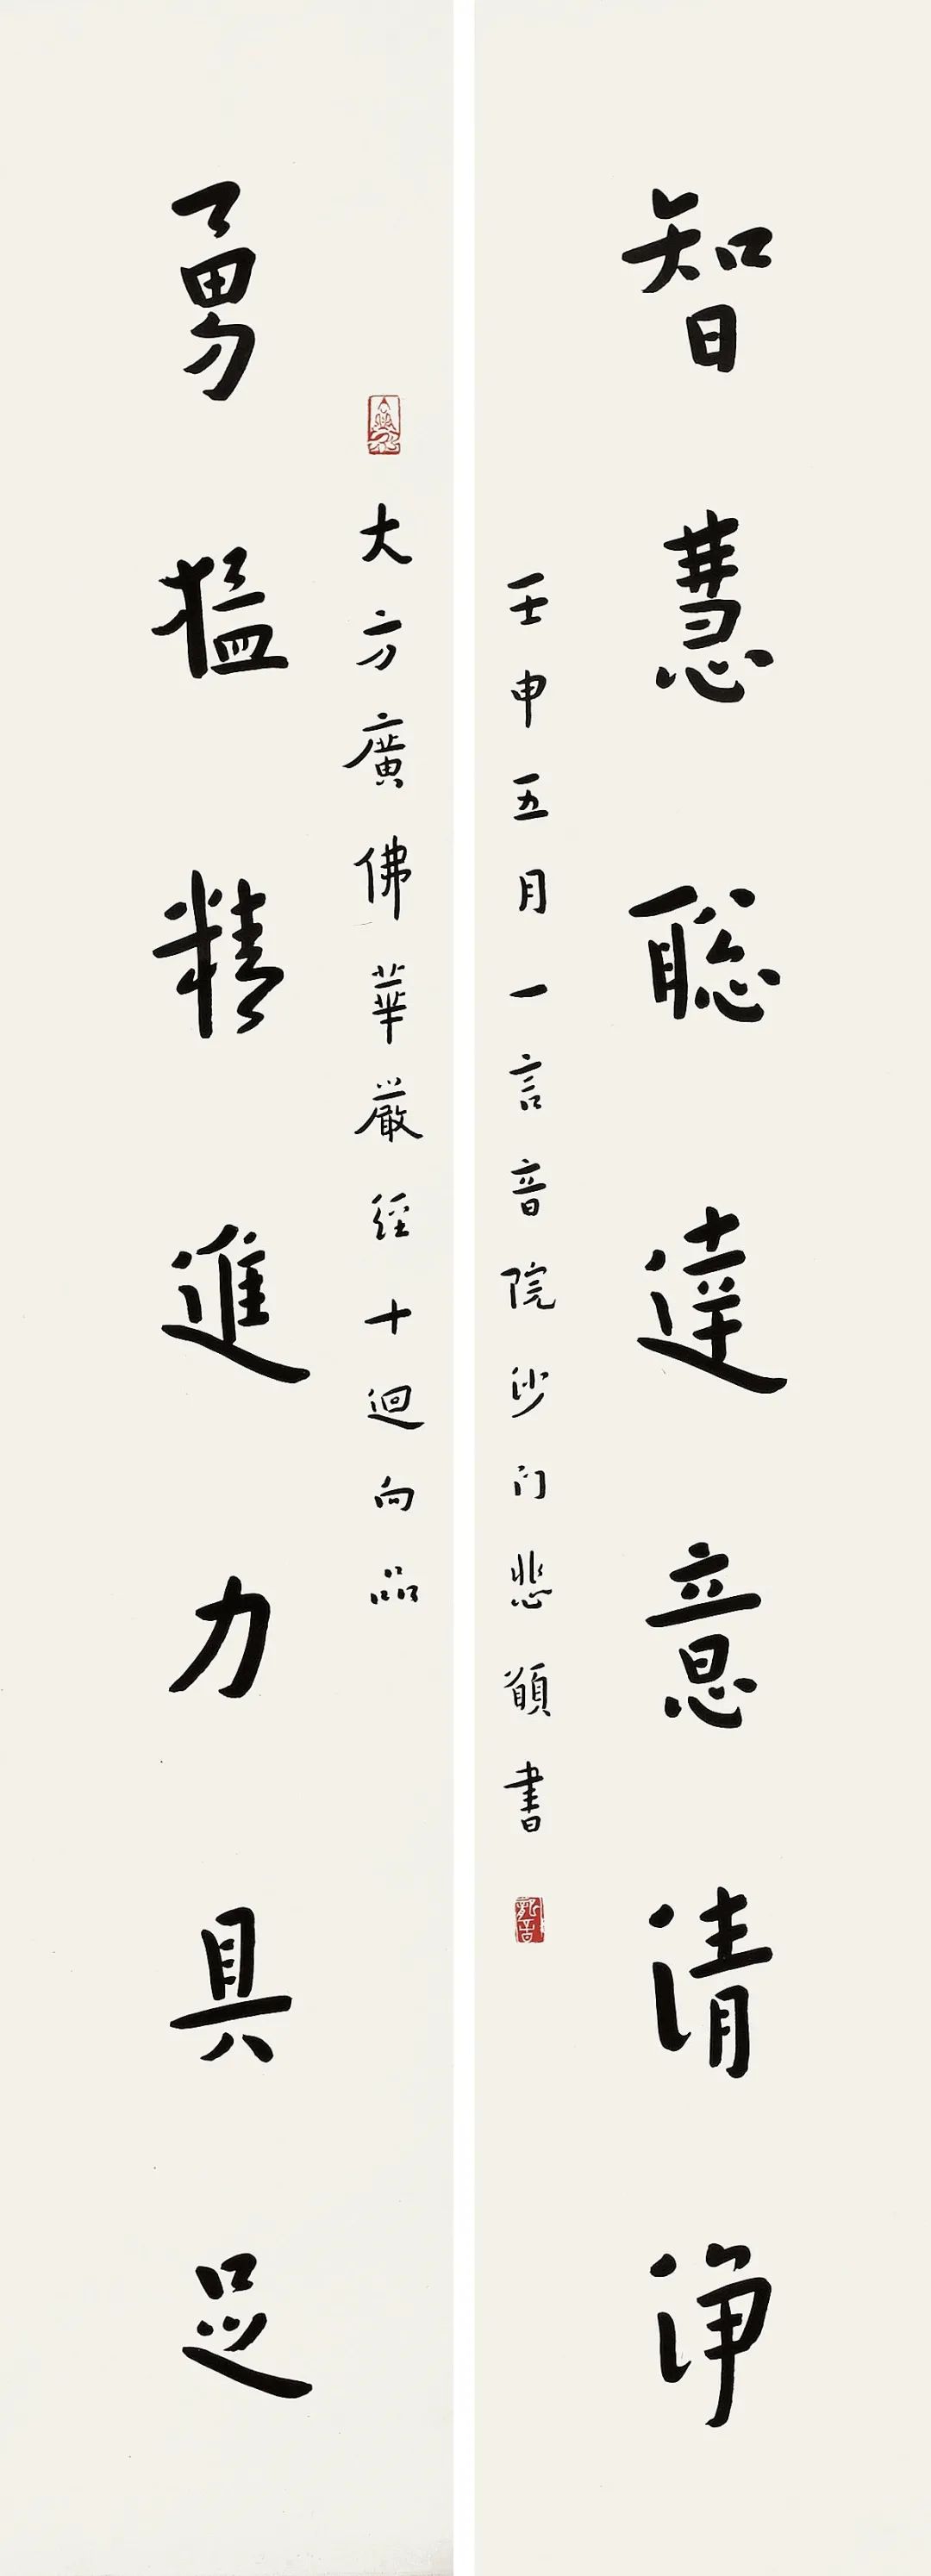 智慧聡達意清淨
壬申五月一言音院沙门悲願書
大方廣佛華嚴經十迴向品
勇猛精進力具足